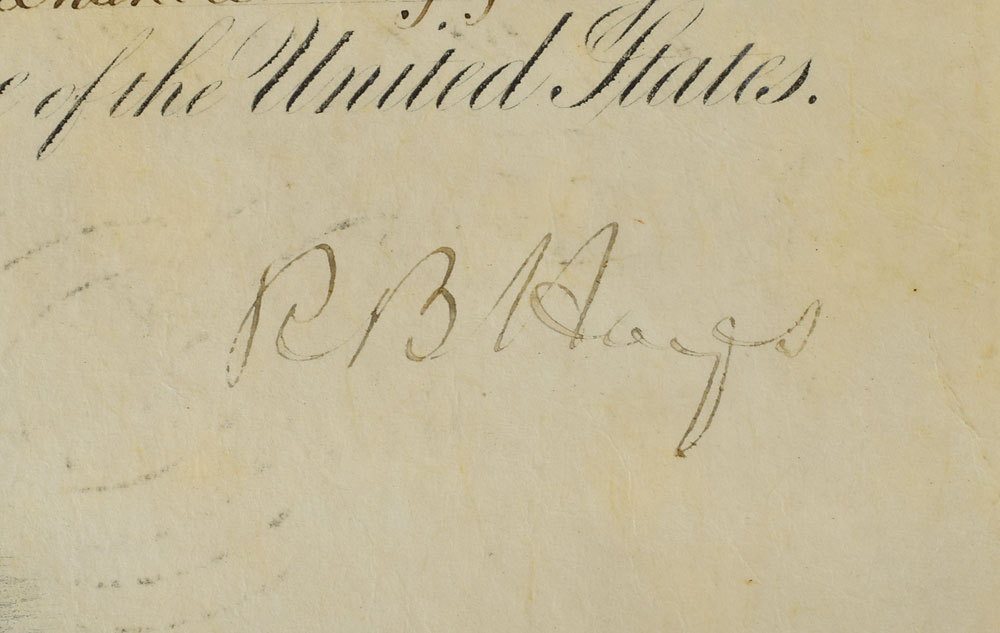 of the United States.
R B Hayes